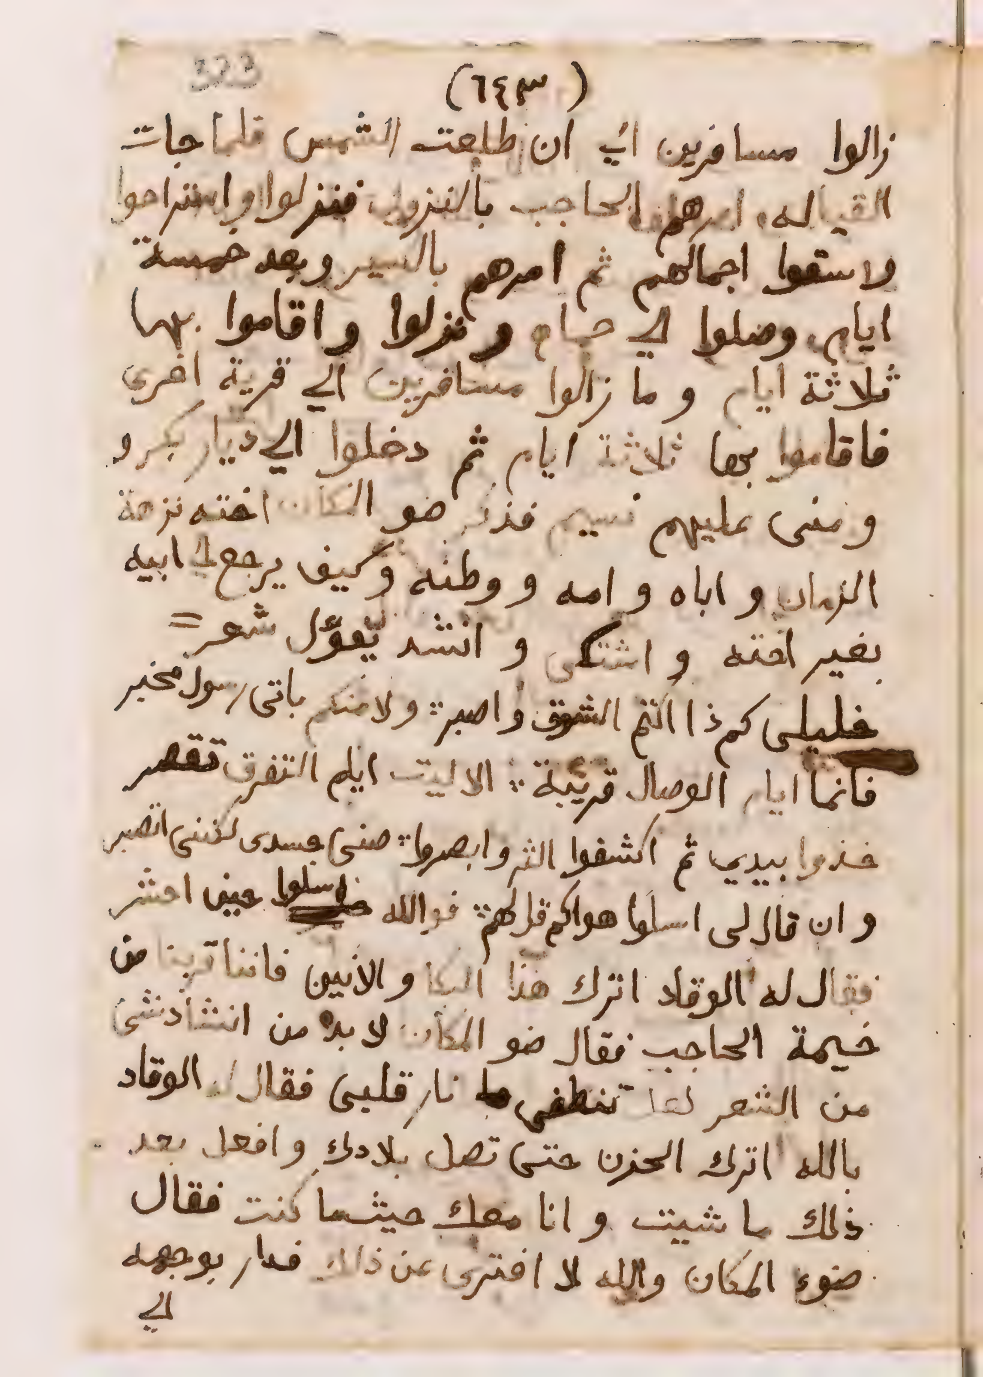 323
(٦٤٣)
زالوا مسافرين الي ان طلعت الشمس فلما جات
القياله امرهم الحاجب بالنزول فنزلوا واستراحوا
واسقوا اجمالهم ثم امرهم بالسير وبعد خمسة
ايام وصلوا الي حماه ونزلوا واقاموا بها
ثلاثة ايام وما زالوا مسافرين الي قرية اخرى
فاقاموا بها ثلاثة ايام ثم دخلوا الي ديار بكر و
ومنى عليهم نسيم فذكر ضو المكان اخته نزهة
الزمان و اباه و امه و وطنه وكيف يرجع لابيه
بغير اخته و اشتكى و انشد يقول شعر =
خليلي كم ذا اكتم الشوق واصبر : ولا منكم ياتى رسول مخبر
فانما ايام الوصال قريبة : الا ليت ايام التفرق تقصر
خذوا بيدي ثم اكشفوا الثر وابصروا : ضنى جسدى لكننى اتصبر
و ان قال لى اسلوا هواكم قل لهم : فوالله اسلوا حين احشر
فقال له الوقاد اترك هذا البكا والانين فاننا قريبا من
خيمة الحاجب فقال ضو المكان لا بد من انشاد شئ
من الشعر لعل تنطفى نار قلبى فقال له الوقاد
بالله اترك الحزن حتى تصل بلادك وافعل بعد
ذلك ما شيت وانا معك حيث ما كنت فقال
ضوء المكان والله لا افترى عن ذلك فدار بوجهه
الي